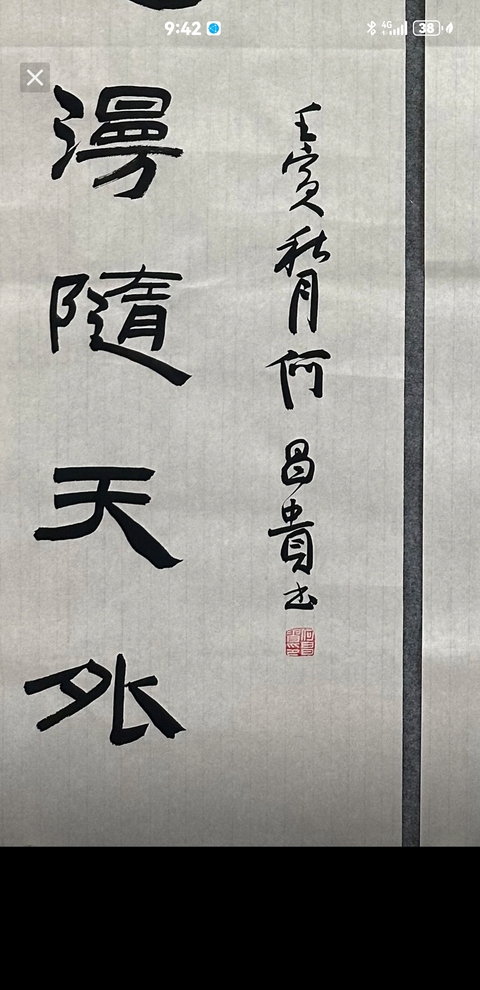 9:42
4G
38
漫隨天外
壬寅秋月何昌貴书